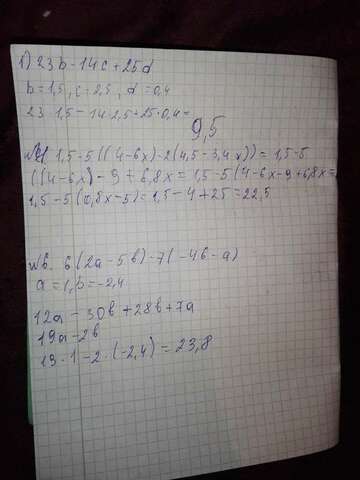 1) 23b - 14c + 25d
b = 1,5, c = 2,5, d = 0,4
23 · 1,5 - 14 · 2,5 + 25 · 0,4 =
9,5
1,5 - 5((4-6x) - 2(4,5 - 3,4x)) = 1,5 - 5
((4-6x) - 9 + 6,8x = 1,5 - 5(4-6x-9+6,8x =
1,5 - 5(0,8x - 5) = 1,5 - 4 + 25 = 22,5
№6. 6(2a - 5b) - 7(-4b - a)
a = 1, b = -2,4
12a - 30b + 28b + 7a
19a - 2b
19 · 1 - 2 · (-2,4) = 23,8